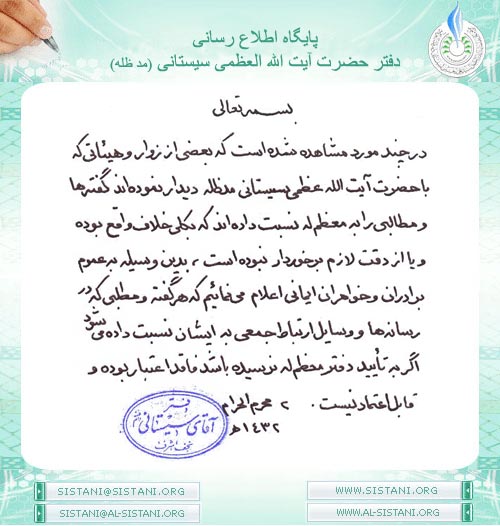 پایگاه اطلاع رسانی
دفتر حضرت آیت الله العظمی سیستانی (مد ظله)
بسمه تعالی
در چند مورد مشاهده شده است که بعضی از زوار و هیئاتی که
با حضرت آیت الله عظمی سیستانی مدظله دیدار نموده اند گفته ها
و مطالبی را به معظم له نسبت داده اند که بکلی خلاف واقع بوده
و یا از دقت لازم برخوردار نبوده است ، بدین وسیله به عموم
برادران و خواهران ایمانی اعلام می نمائیم که هر گفته و مطلبی که در
رسانه ها و وسایل ارتباط جمعی به ایشان نسبت داده می شود
اگر به تأیید دفتر معظم له نرسیده باشد فاقد اعتبار بوده و
قابل اعتماد نیست . ۲ محرم الحرام
۱۴۳۲ هـ
دفتر
آقای سیستانی
نجف اشرف
SISTANI@SISTANI.ORG
WWW.SISTANI.ORG
SISTANI@AL-SISTANI.ORG
WWW.AL-SISTANI.ORG